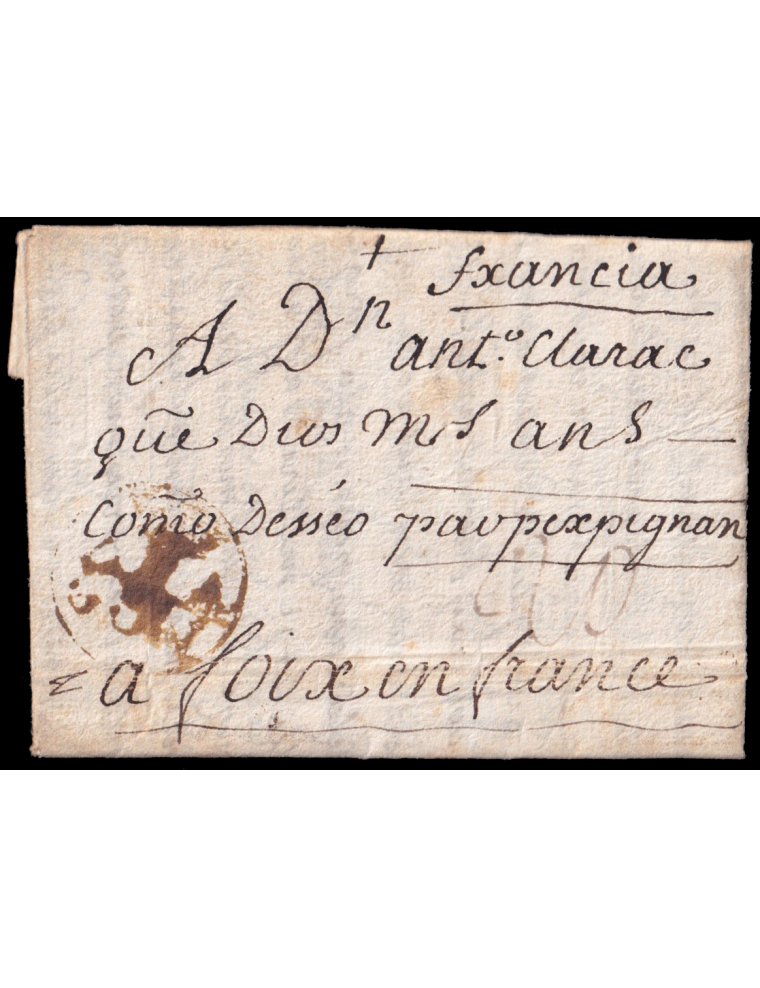 + francia
A Dn ant.º Clarac
que Dios ms ans
como Desséo par perpignan
a foix en france